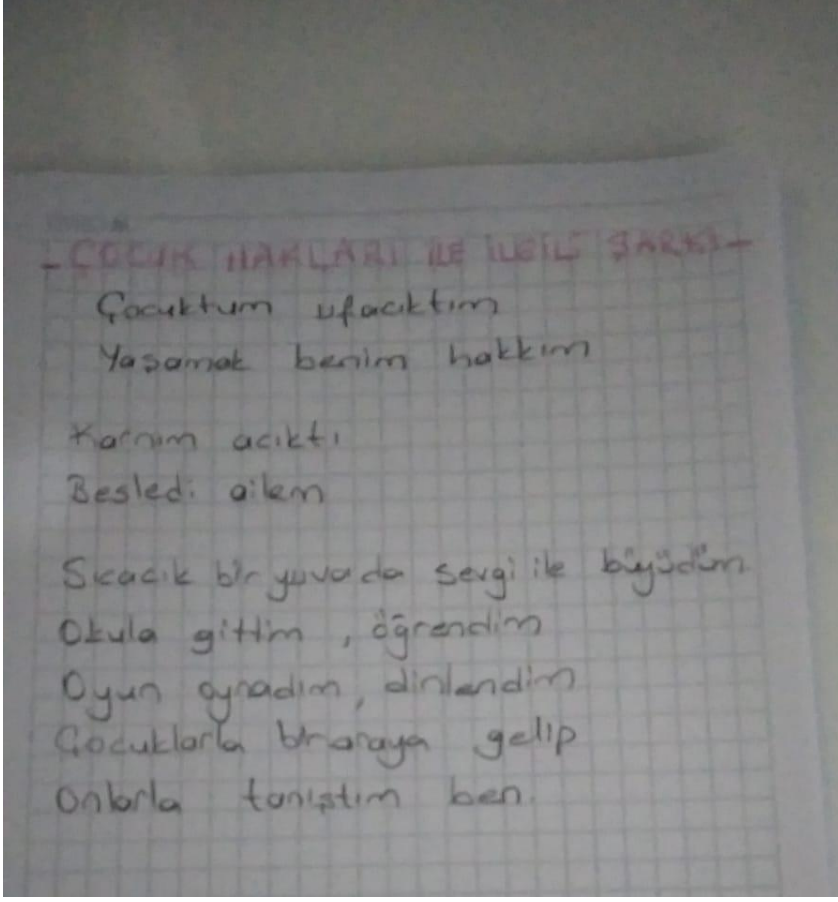 -ÇOCUK HAKLARI İLE İLGİLİ ŞARKI-
Çocuktum ufacıktım
Yaşamak benim hakkım
Karnım acıktı
Besledi ailem
Sıcacık bir yuvada sevgi ile büyüdüm
Okula gittim, öğrendim
Oyun oynadım, dinlendim
Çocuklarla bir araya gelip
Onlarla tanıştım ben.